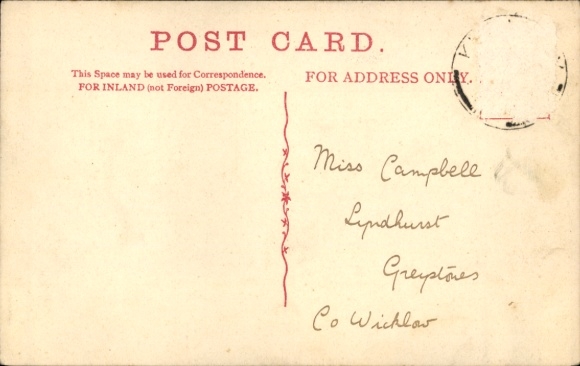 POST CARD.
This Space may be used for Correspondence.
FOR INLAND (not Foreign) POSTAGE.
FOR ADDRESS ONLY.
Miss Campbell
Lyndhurst
Greystones
Co Wicklow